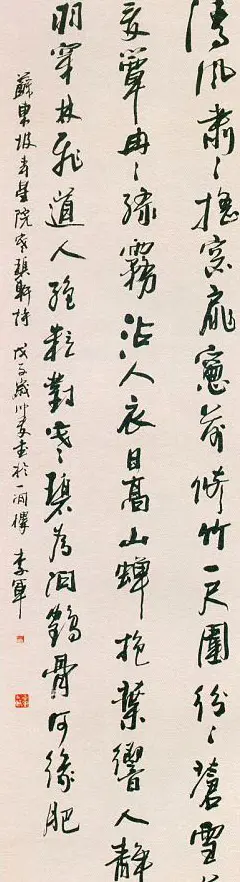 清風肅〻搖窗扉窻前修竹一尺圍紛〻蒼雪
夏簟冉〻綠霧沾人衣日高山蟬抱葉響人靜
羽穿林飛道人絕粒對寒碧為問鶴骨何緣肥
蘇東坡壽星院寒碧軒詩 戊子歲 書於一 李軍